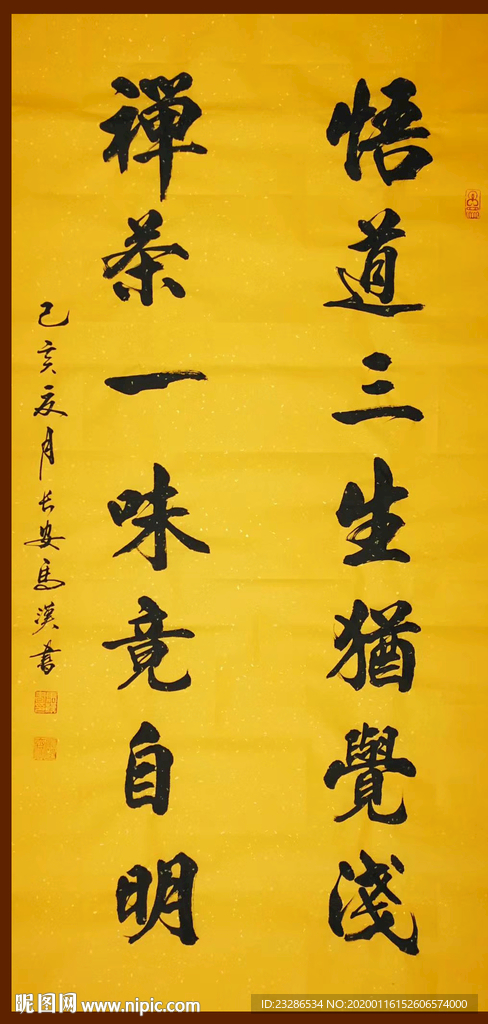 悟道三生猶覺淺
禪茶一味竟自明
己亥夏月长安馬漢書
昵图网 www.nipic.com
ID:23286534 NO:20200116152606574000